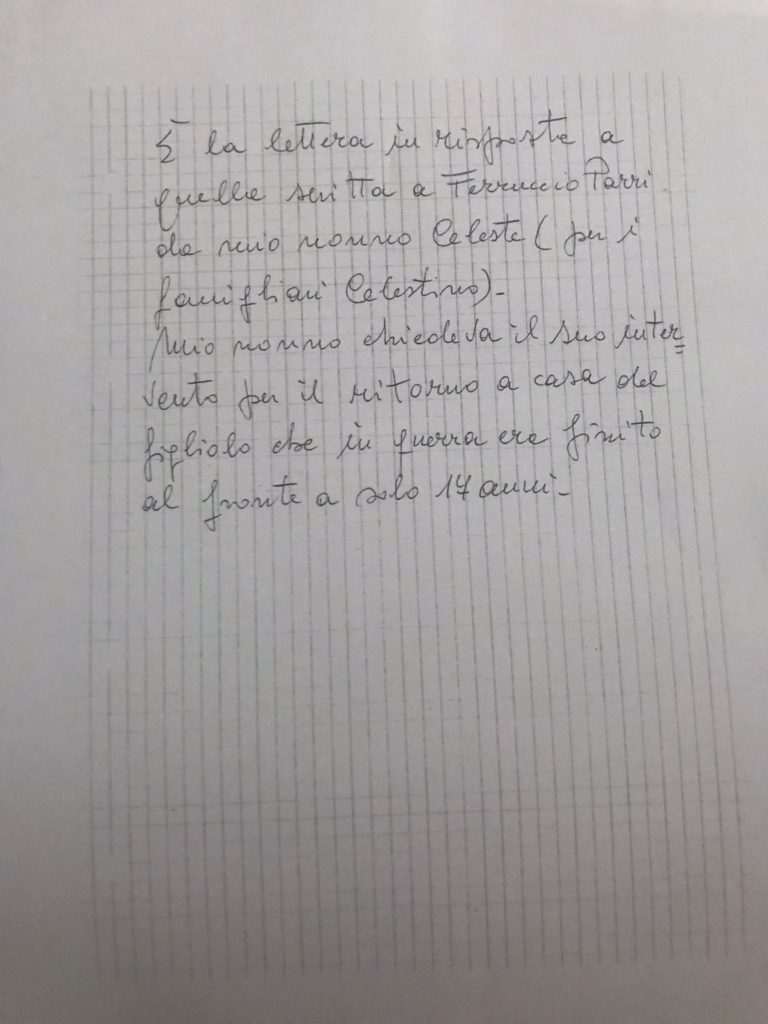 È la lettera in risposta a
quella scritta a Ferruccio Parri
da mio nonno Celeste ( per i
famigliari Celestino).-
Mio nonno chiedeva il suo inter=
vento per il ritorno a casa del
figliolo che in guerra era finito
al fronte a solo 17 anni.-